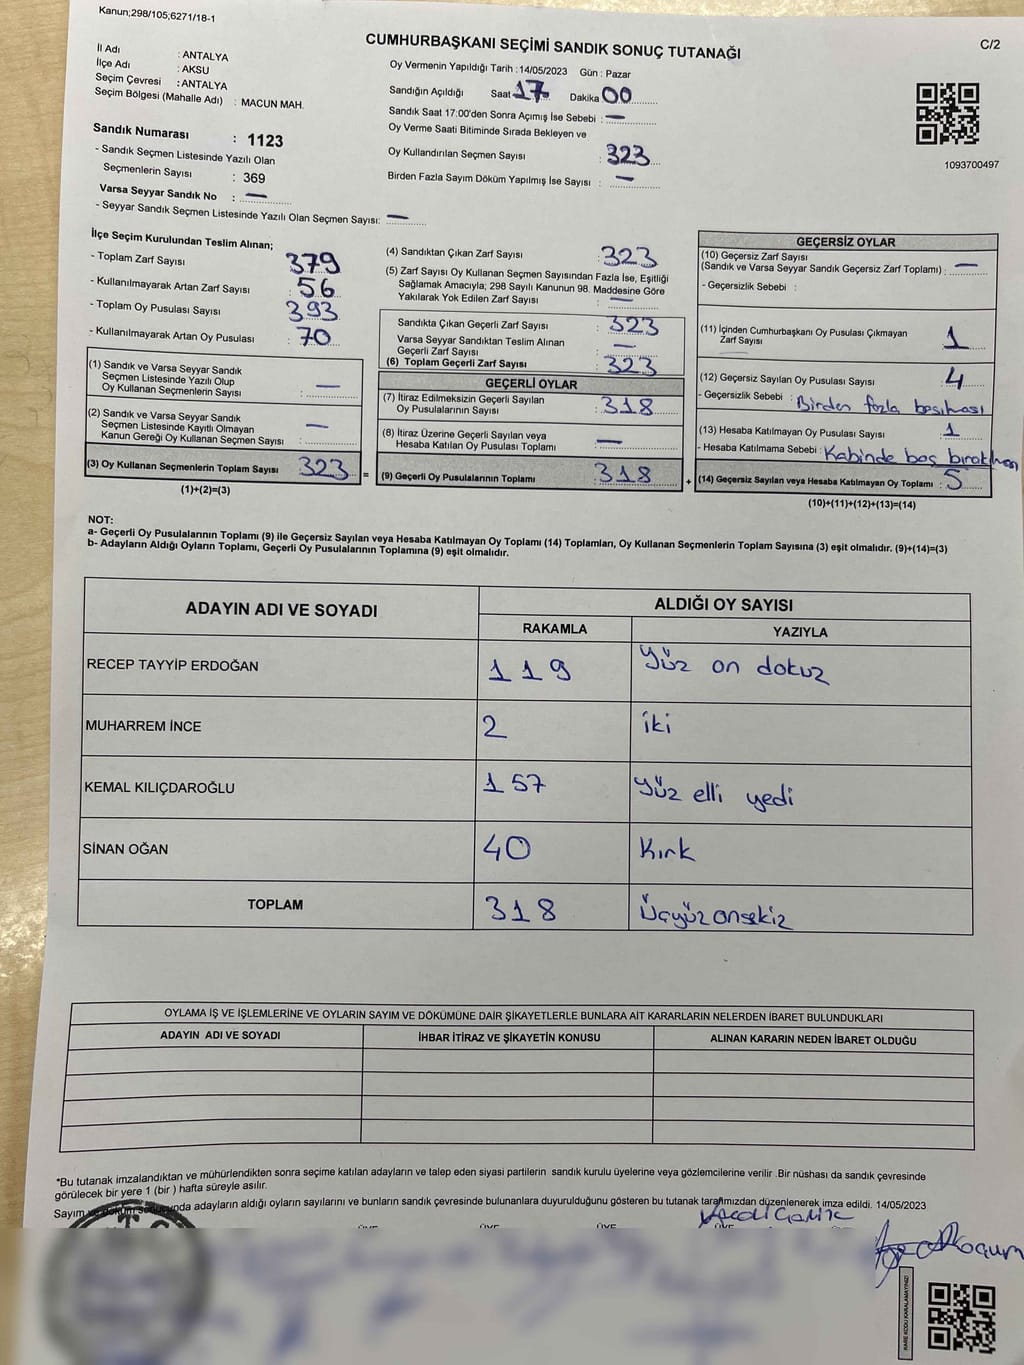 Kanun;298/105;6271/18-1
C/2
CUMHURBAŞKANI SEÇİMİ SANDIK SONUÇ TUTANAĞI
İl Adı : ANTALYA
İlçe Adı : AKSU
Seçim Çevresi : ANTALYA
Seçim Bölgesi (Mahalle Adı) : MACUN MAH.
Sandık Numarası : 1123
- Sandık Seçmen Listesinde Yazılı Olan
Seçmenlerin Sayısı : 369
Varsa Seyyar Sandık No : —
- Seyyar Sandık Seçmen Listesinde Yazılı Olan Seçmen Sayısı: —
Oy Vermenin Yapıldığı Tarih : 14/05/2023 Gün : Pazar
Sandığın Açıldığı Saat 17 Dakika 00
Sandık Saat 17:00'den Sonra Açımış İse Sebebi : —
Oy Verme Saati Bitiminde Sırada Bekleyen ve
Oy Kullandırılan Seçmen Sayısı : 323
Birden Fazla Sayım Döküm Yapılmış İse Sayısı : —
1093700497
İlçe Seçim Kurulundan Teslim Alınan;
- Toplam Zarf Sayısı : 379
- Kullanılmayarak Artan Zarf Sayısı : 56
- Toplam Oy Pusulası Sayısı : 393
- Kullanılmayarak Artan Oy Pusulası : 70
(1) Sandık ve Varsa Seyyar Sandık
Seçmen Listesinde Yazılı Olup
Oy Kullanan Seçmenlerin Sayısı : —
(2) Sandık ve Varsa Seyyar Sandık
Seçmen Listesinde Kayıtlı Olmayan
Kanun Gereği Oy Kullanan Seçmen Sayısı : —
(3) Oy Kullanan Seçmenlerin Toplam Sayısı : 323 =
(1)+(2)=(3)
(4) Sandıktan Çıkan Zarf Sayısı : 323
(5) Zarf Sayısı Oy Kullanan Seçmen Sayısından Fazla İse, Eşitliği
Sağlamak Amacıyla; 298 Sayılı Kanunun 98. Maddesine Göre
Yakılarak Yok Edilen Zarf Sayısı : —
Sandıkta Çıkan Geçerli Zarf Sayısı : 323
Varsa Seyyar Sandıktan Teslim Alınan
Geçerli Zarf Sayısı : —
(6) Toplam Geçerli Zarf Sayısı : 323
GEÇERLİ OYLAR
(7) İtiraz Edilmeksizin Geçerli Sayılan
Oy Pusulalarının Sayısı : 318
(8) İtiraz Üzerine Geçerli Sayılan veya
Hesaba Katılan Oy Pusulası Toplamı : —
(9) Geçerli Oy Pusulalarının Toplamı : 318 +
GEÇERSİZ OYLAR
(10) Geçersiz Zarf Sayısı
(Sandık ve Varsa Seyyar Sandık Geçersiz Zarf Toplamı) : —
- Geçersizlik Sebebi :
(11) İçinden Cumhurbaşkanı Oy Pusulası Çıkmayan
Zarf Sayısı : 1
(12) Geçersiz Sayılan Oy Pusulası Sayısı : 4
- Geçersizlik Sebebi : Birden fazla basılması
(13) Hesaba Katılmayan Oy Pusulası Sayısı : 1
- Hesaba Katılmama Sebebi : Kabinde boş bırakılması
(14) Geçersiz Sayılan veya Hesaba Katılmayan Oy Toplamı : 5
(10)+(11)+(12)+(13)=(14)
NOT:
a- Geçerli Oy Pusulalarının Toplamı (9) ile Geçersiz Sayılan veya Hesaba Katılmayan Oy Toplamı (14) Toplamları, Oy Kullanan Seçmenlerin Toplam Sayısına (3) eşit olmalıdır. (9)+(14)=(3)
b- Adayların Aldığı Oyların Toplamı, Geçerli Oy Pusulalarının Toplamına (9) eşit olmalıdır.
ADAYIN ADI VE SOYADI ALDIĞI OY SAYISI
RAKAMLA YAZIYLA
RECEP TAYYİP ERDOĞAN 119 Yüz on dokuz
MUHARREM İNCE 2 iki
KEMAL KILIÇDAROĞLU 157 Yüz elli yedi
SİNAN OĞAN 40 Kırk
TOPLAM 318 Üçyüzonsekiz
OYLAMA İŞ VE İŞLEMLERİNE VE OYLARIN SAYIM VE DÖKÜMÜNE DAİR ŞİKAYETLERLE BUNLARA AİT KARARLARIN NELERDEN İBARET BULUNDUKLARI
ADAYIN ADI VE SOYADI İHBAR İTİRAZ VE ŞİKAYETİN KONUSU ALINAN KARARIN NEDEN İBARET OLDUĞU
*Bu tutanak imzalandıktan ve mühürlendikten sonra seçime katılan adayların ve talep eden siyasi partilerin sandık kurulu üyelerine veya gözlemcilerine verilir .Bir nüshası da sandık çevresinde
görülecek bir yere 1 (bir ) hafta süreyle asılır.
Sayım ve döküm sonucunda adayların aldığı oyların sayılarını ve bunların sandık çevresinde bulunanlara duyurulduğunu gösteren bu tutanak tarafımızdan düzenlenerek imza edildi. 14/05/2023
ÜYE ÜYE ÜYE ÜYE
KARE KODU KARALAMAYINIZ!